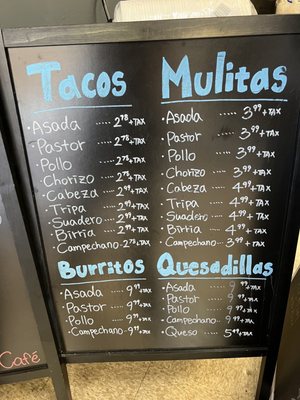 Tacos
Asada ..... 2.78 +TAX
Pastor ..... 2.78 +TAX
Pollo ..... 2.78 +TAX
Chorizo .... 2.78 +TAX
Cabeza .... 2.99 +TAX
Tripa ..... 2.99 +TAX
Suadero ... 2.99 +TAX
Birria ..... 2.99 +TAX
Campechano. 2.78 +TAX
Mulitas
Asada ..... 3.99 +TAX
Pastor ..... 3.99 +TAX
Pollo ..... 3.99 +TAX
Chorizo .... 3.99 +TAX
Cabeza .... 4.99 +TAX
Tripa ..... 4.99 +TAX
Suadero ... 4.99 +TAX
Birria ..... 4.99 +TAX
Campechano .... 3.99 +TAX
Burritos
Asada .... 9.99 +TAX
Pastor .... 9.99 +TAX
Pollo .... 9.99 +TAX
Campechano.. 9.99 +TAX
Quesadillas
Asada ..... 9.99 +TAX
Pastor ..... 9.99 +TAX
Pollo ..... 9.99 +TAX
Campechano .... 9.99 +TAX
Queso ..... 5.49 +TAX
Café